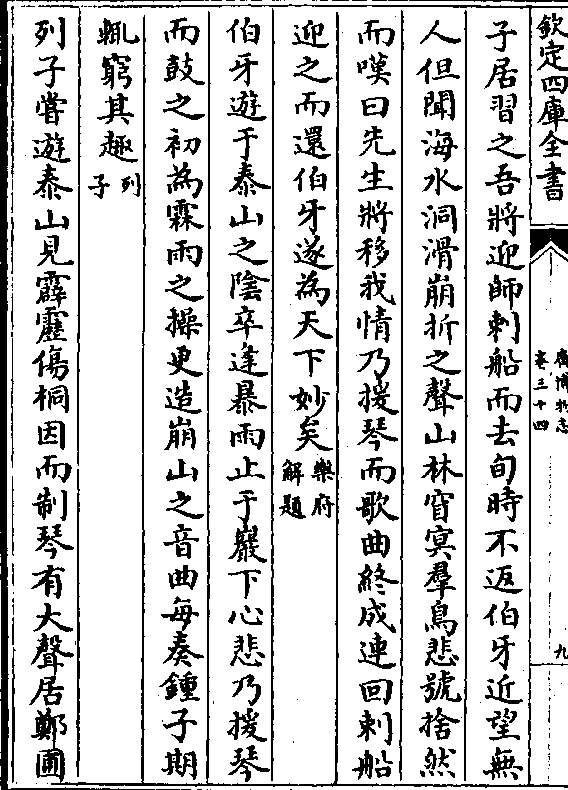 欽定四庫全書
廣博物志
卷三十四
九
子居習之吾將迎師刺船而去旬時不返伯牙近望無
人但聞海水洞滑崩折之聲山林窅冥羣鳥悲號愴然
而嘆曰先生將移我情乃援琴而歌曲終成連回刺船
迎之而還伯牙遂為天下妙矣樂府
解題
伯牙遊于泰山之陰卒逢暴雨止于巖下心悲乃援琴
而鼓之初為霖雨之操更造崩山之音曲每奏鍾子期
輒窮其趣列
子
列子嘗遊泰山見霹靂傷桐因而制琴有大聲居鄭圃